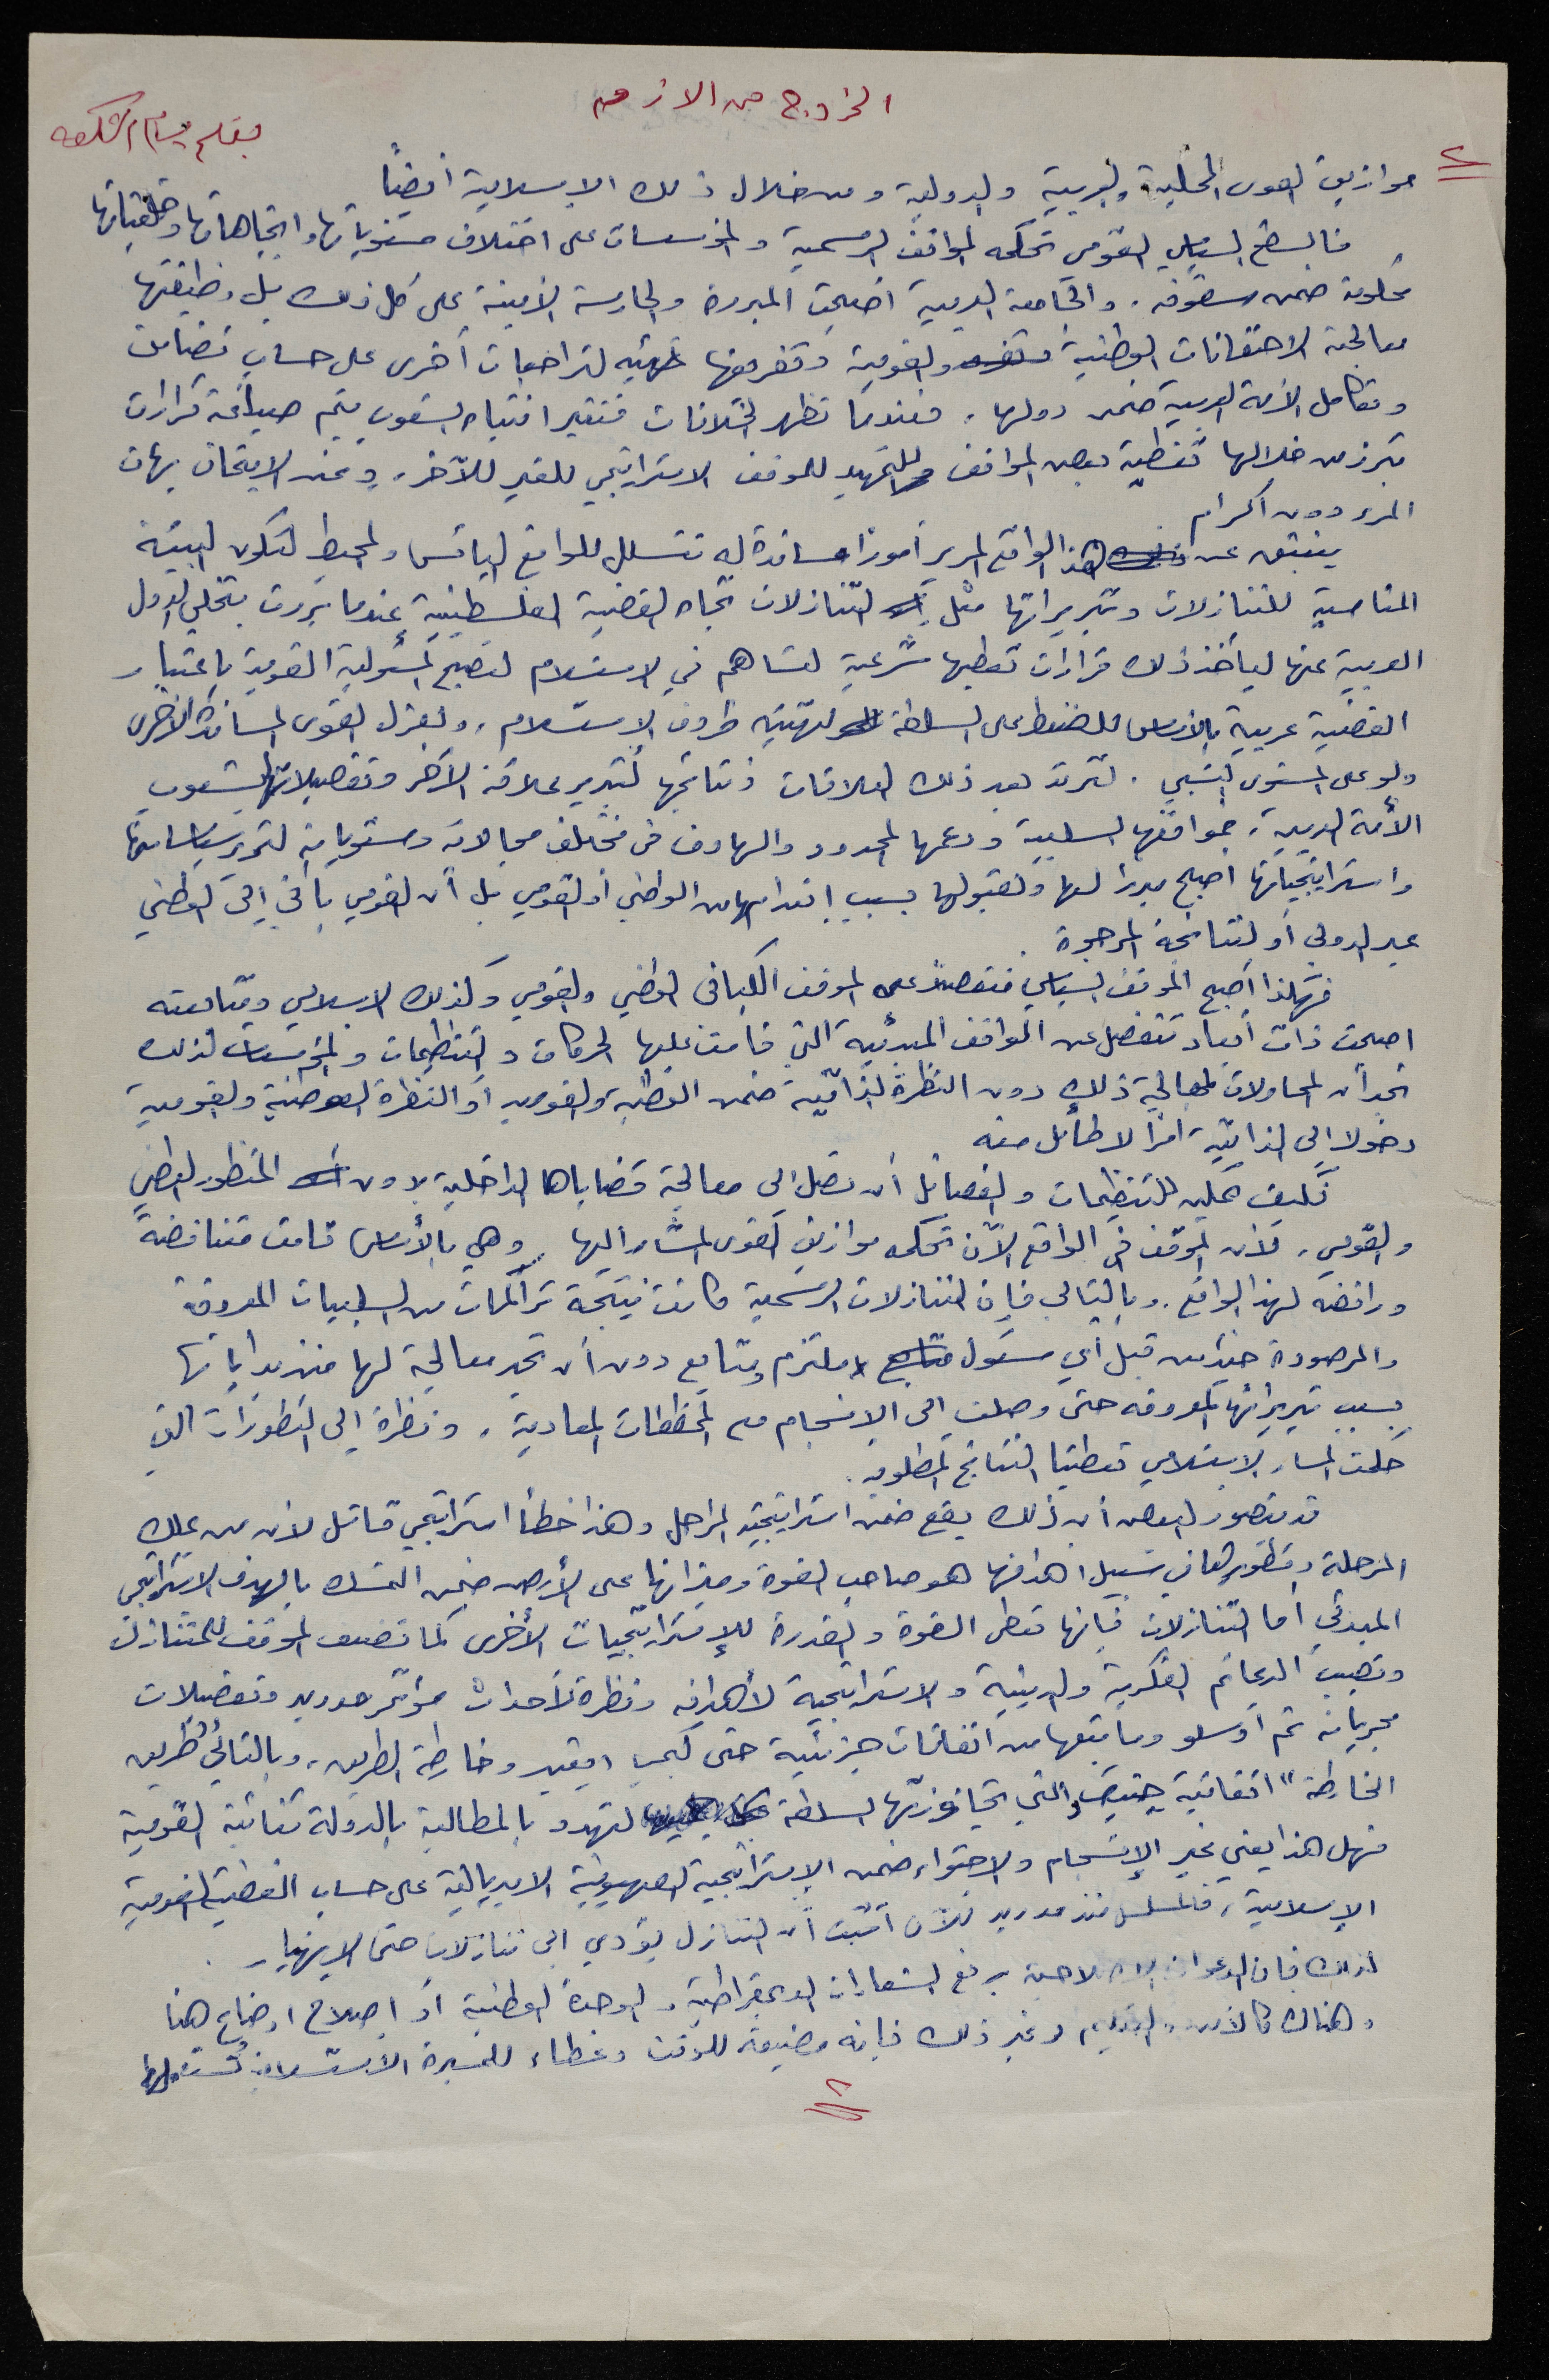 الخروج من الازمة
بقلم بسام الشكعه
٢
موازين القوى المحلية والعربية والدولية ومن خلال ذلك الاسلامية أيضاً
فالسطح السياسي القومي تحكمه المواقف الرسمية والمؤسسات على اختلاف مستوياتها واتجاهاتها وخلفياتها
محكومة ضمن سقوفه. والجامعة العربية اصبحت المبررة والحارسة الأمينة على كل ذلك بل وظيفتها
معالجة الاحتقانات الوطنية والقومية وتفريغها تهيئه لتراجعات أخرى على حساب تضامن
وتكامل الأمة العربية ضمن دولها. فعندما تظهر الخلافات فتثير انتباه الشعوب يتم صياغة قرارات
تبرز من خلالها تغطية بعض المواقف للتمهيد للموقف الاستراتيجي للغير للآخر. وعند الامتحان يهان
المرء دون اكرام
ينبثق عن هذا الواقع المرير أمورا مساندة له تتسلل للواقع اليائس والمحبط لتكون البيئة
المناسبة للتنازلات وتبريراتها مثل التنازلات تجاه القضية الفلسطينية عندما بررت بتخلي الدول
العربية عنها ليأخذ ذلك قرارات تعطيها شرعية لتساهم في الاستسلام لتصبح المسئولية القومية باعتبار
القضية عربية بالأساس للضغط على السلطة لتهيئه ظروف الاستسلام. ولعزل القوى المساندة الأخرى
ولو على المستوى الشعبي. لترتد بعد ذلك العلاقات ونتائجها لتبرير علاقة الآخر وتفصيلاتها لشعوب
الأمة العربية. فمواقفها السلبية ودعمها المحدود والهادف في مختلف مجالاته ومستوياته لتمرير سياساتها
واستراتيجياتها أصبح مبررا لها ولقبولها بسبب انعدامها من الوطني أو القومي بل أن القومي يأتي إلى الوطني
عبر الدولي أو لنتائجه المرجوة.
فهكذا أصبح الموقف السياسي منفصلاً عن الموقف الكفاحي الوطني والقومي وكذلك الاسلامي ومتابعته
اصبحت ذات أبعاد تنفصل عن المواقف المبدئية التي قامت عليها الحركات والتنظيمات والمؤسسات لذلك
نجد أن المحاولات لمعالجة ذلك دون النظرة الذاتية ضمن الوطنية والقومية أو النظرة الوطنية والقومية
دخولا إلى الذاتية امرا لا طائل منه
فكيف يمكن للتنظيمات والفصائل أن تصل إلى معالجة قضاياها الداخلية بدون المنظور الوطني
والقومي. لأن الموقف في الواقع الآن تحكمه موازين القوى المشار اليها وهي بالأساس قامت متناقضة
ورافضة لهذا الواقع. وبالتالي فإن التنازلات الرسمية كانت نتيجة تراكمات من السلبيات المعروفة
والمرصودة جيدا من قبل أي مسئول ملتزم ومتابع دون أن تجد معالجة لها منذ بداياتها
بسبب تبريراتها المعروفه حتى وصلت إلى الانسجام مع المخططات المعادية. ونظرة إلى التطورات التي
حكمت المسار الاستسلامي تعطينا النتائج المطلوبة.
قد يتصور البعض أن ذلك يقع ضمن استراتيجية المراحل وهذا خطأ استراتيجي قاتل لأن من يملك
المرحلة وتطويرها في سبيل اهدافها هو صاحب القوة وميزانها على الأرض ضمن التمسك بالهدف الاستراتيجي
المبدئي اما التنازلات فإنها تعطي القوة والقدرة للإستراتيجيات الأخرى كما تضعف الموقف للمتنازل
وتصيب الدعائم الفكرية والدينية والاستراتيجية لأهدافه ونظرة لأحداث مؤتمر مدريد وتفصيلات
مجرياته ثم أوسلو وما تبعها من اتفاقات جزئية حتى كمب ديفيد وخارطة الطريق. وبالتالي طريق
الخارطة" اتفاقية جنيف والتي تجاوزتها السلطة لتهدد بالمطالبة بالدولة ثنائية القومية
فهل هذا يعني غير الإنسجام والاحتواء ضمن الإستراتيجية الصهيونية الامبريالية على حساب القضية القومية
الإسلامية، فالمسلسل منذ مدريد للآن أثبت أن التنازل يؤدي الى تنازلات حتى الانهيار.
لذلك فإن الدعوات الاصلاحية برفع الشعارات الديمقراطية والوحدة الوطنية أو اصلاح اوضاع هنا
وهناك كالأمن والتعليم وغير ذلك فإنه مضيعة للوقت وغطاء للمسيرة الاستسلامية تستعملها
٢